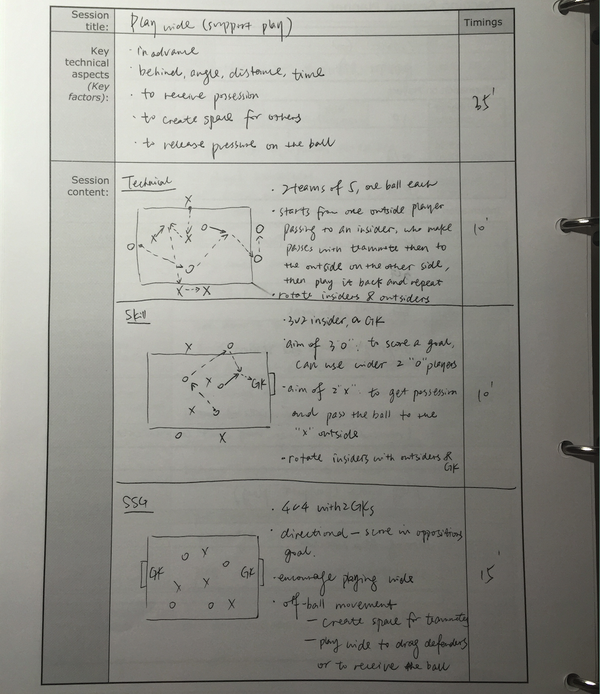 Session title:
Play wide (support play)
Timings
Key technical aspects (Key factors):
· in advance
· behind, angle, distance, time
· to receive possession
· to create space for others
· to release pressure on the ball
35'
Session content:
Technical
· 2 teams of 5, one ball each
· starts from one outside player
passing to an insider, who make
passes with teammate then to
the outside on the other side,
then play it back and repeat
· rotate insiders & outsiders
10'
X
X
X
O
O
O
O
O
X
X
Skill
· 3v2 insider, a GK
· aim of 3 "O": to score a goal,
can use wider 2 "O" players
· aim of 2 "X": to get possession
and pass the ball to the
"X" outside
· rotate insiders with outsiders &
GK
10'
X
O
O
X
O
GK
X
O
O
X
SSG
· 4v4 with 2 GKs
· directional – score in oppositions
goal.
· encourage playing wide
· off-ball movement
– create space for teammates
– play wide to drag defenders
or to receive the ball
15'
GK
O
X
O
GK
X
X
O
O
X